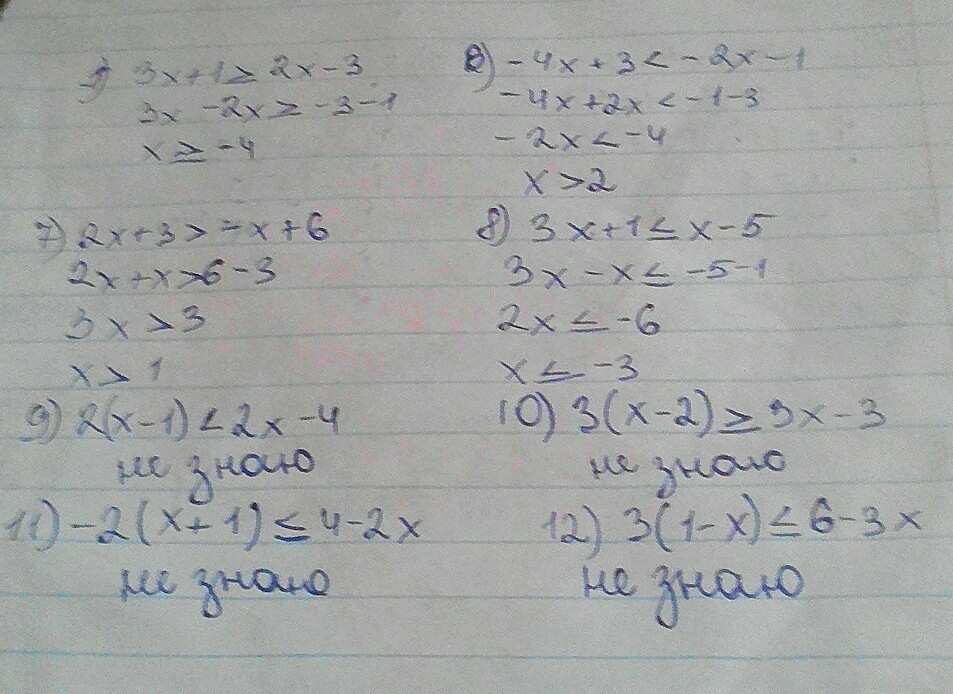 5) 3x+1≥2x-3
3x-2x≥-3-1
x≥-4
6) -4x+3<-2x-1
-4x+2x<-1-3
-2x<-4
x>2
7) 2x+3>-x+6
2x+x>6-3
3x>3
x>1
8) 3x+1≤x-5
3x-x≤-5-1
2x≤-6
x≤-3
9) 2(x-1)<2x-4
не знаю
10) 3(x-2)≥3x-3
не знаю
11) -2(x+1)≤4-2x
не знаю
12) 3(1-x)≤6-3x
не знаю